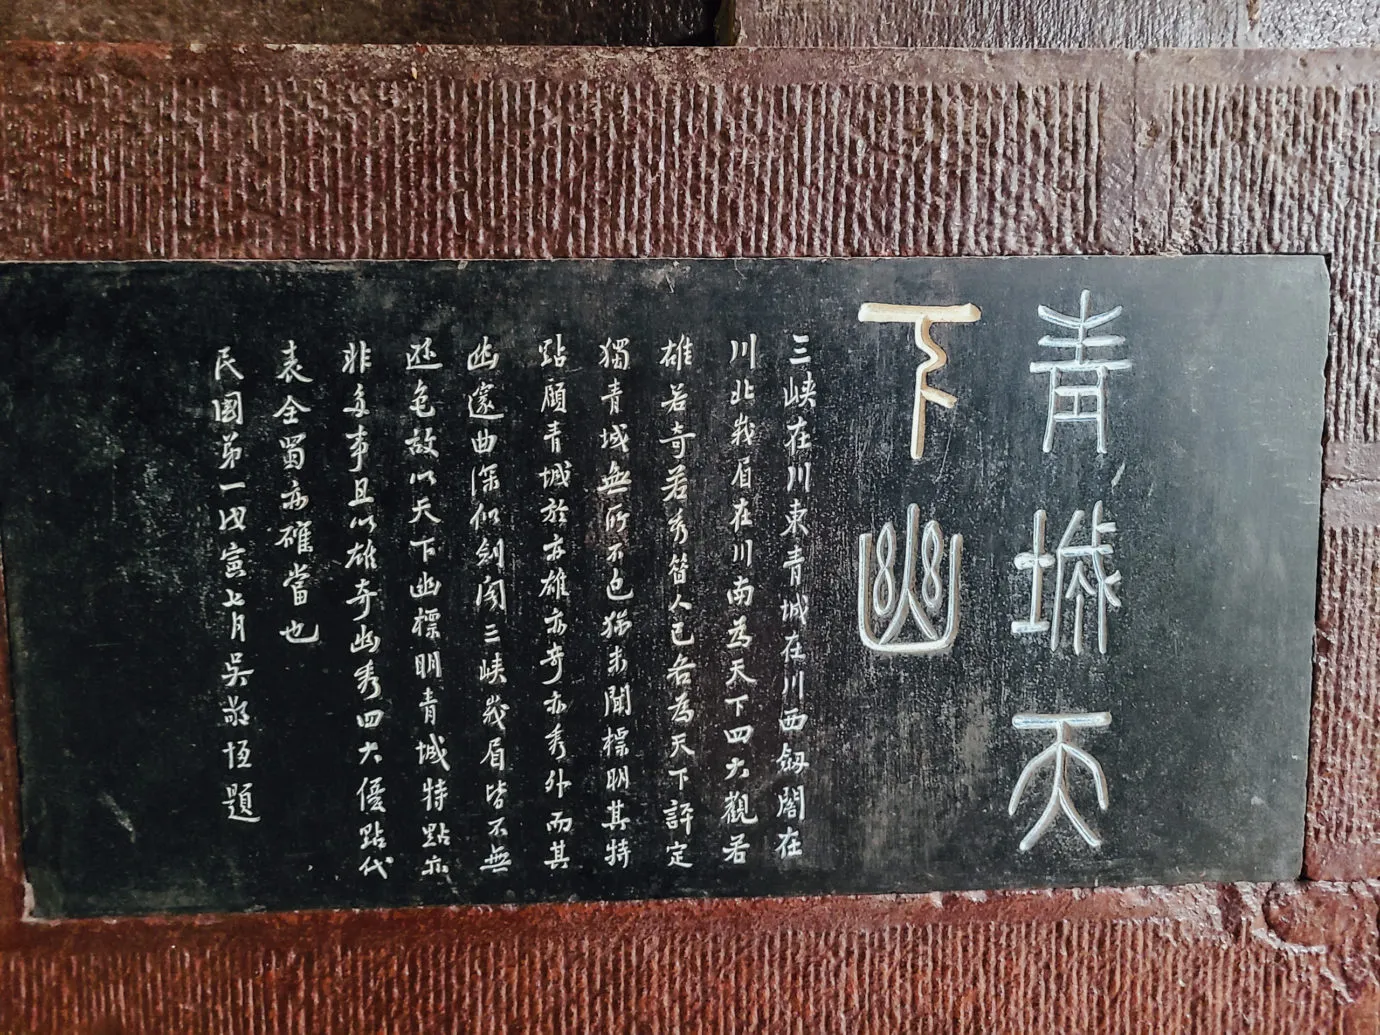 青城天
下幽
三峽在川東青城在川西劔閣在
川北峩眉在川南為天下四大觀若
雄若奇若秀昔人已各為天下評定
獨青城無所不包猶未聞標明其特
點願青城於亦雄亦奇亦秀外而其
幽邃曲深似劍閣三峽峩眉皆不無
遜色故以天下幽標明青城特點亦
非多事且以雄奇幽秀四大優點代
表全蜀亦確當也
民國第一戊寅七月吳敬恆題